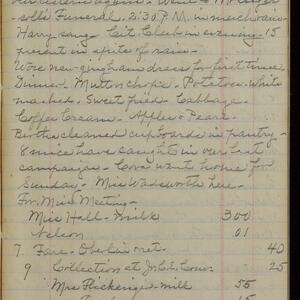 solls Funeral. 2:30 P.M. in
Harry sang. Cit. Club in evening - 15
present in spite of rain -
Wore new gingham dress for first time.
Dinner. Mutton chops. Potatoes. White
mashed. Sweet fried. Cabbage.
Coffee Cream. Apples & Pears.
Bertha cleaned cupboards in pantry -
8 mice have caught in our last
campaign. Cora went home for
Sunday - Miss Wadsworth here -
For Miss. Meeting -
Miss Hall - milk 3 00
Nelson 01
7. Fare - Oberlin ret. 40
9 Collection at 25
Mrs Pickenger - milk 56
15